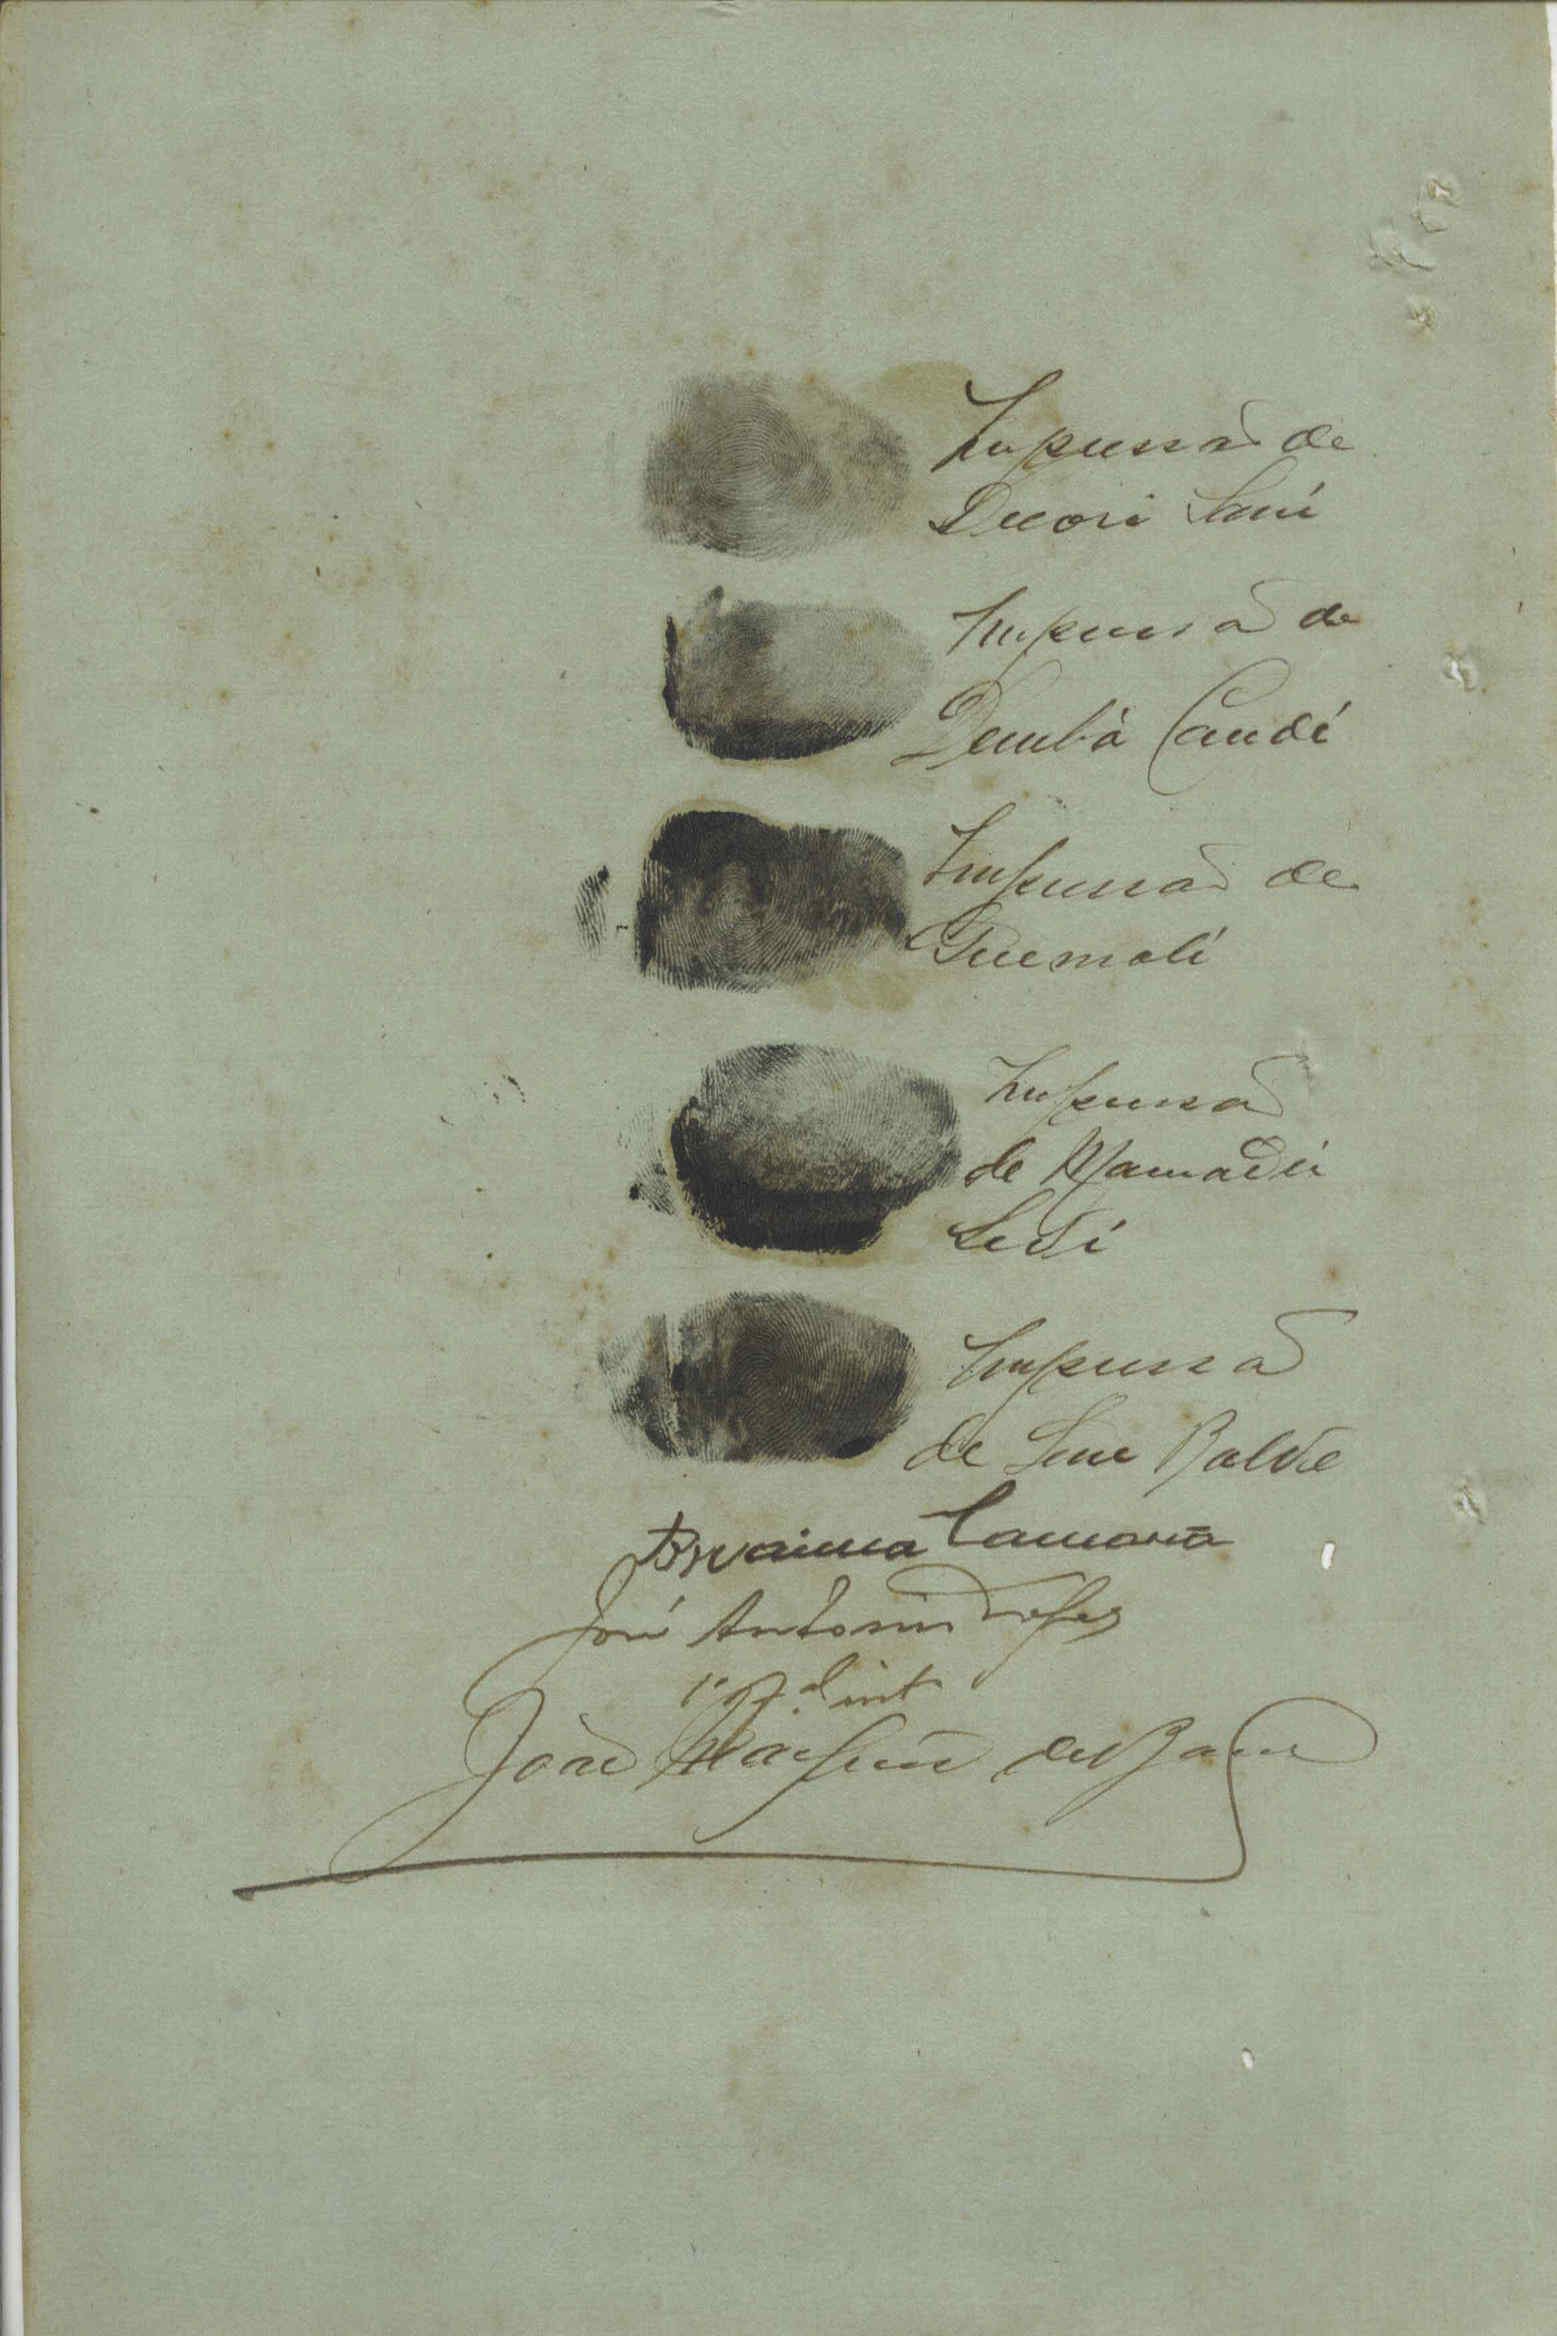 Impressão de
Decori Sani
Impressão de
Dembà Candí
Impressão de
Quemali
Impressão
de Mamadú
Sedí
Impressão
de Sene Balde
Braima Camará
José António Lopes
1º
João de